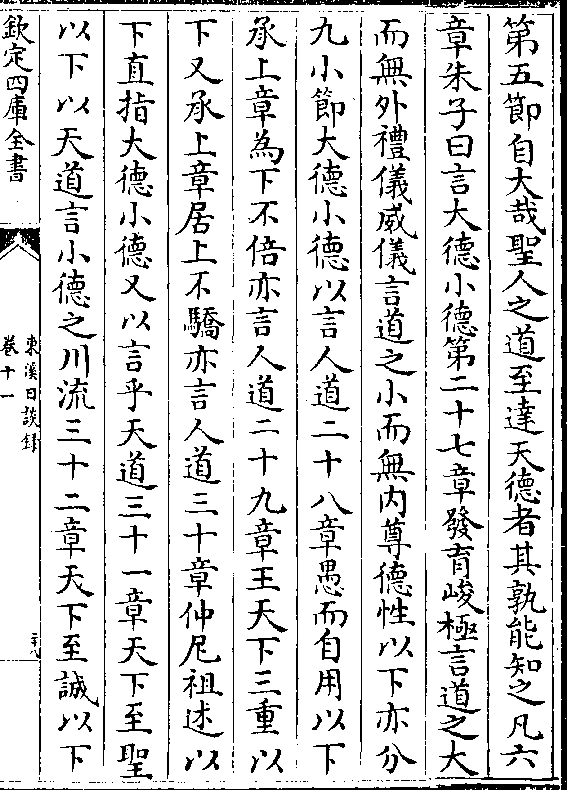 第五節自大哉聖人之道至達天德者其孰能知之凡六
章朱子曰言大德小德第二十七章發育峻極言道之大
而無外禮儀威儀言道之小而無内尊德性以下亦分
九小節大德小德以言人道二十八章愚而自用以下
承上章為下不倍亦言人道二十九章王天下三重以
下又承上章居上不驕亦言人道三十章仲尼祖述以
下直指大德小德又以言乎天道三十一章天下至聖
以下以天道言小德之川流三十二章天下至誠以下
欽定四庫全書
東溪日談録
卷十一